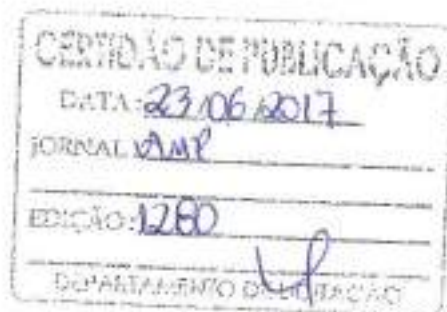 CERTIDÃO DE PUBLICAÇÃO
DATA: 23/06/2017
JORNAL AMP
EDIÇÃO: 1280
DEPARTAMENTO DE LICITAÇÃO